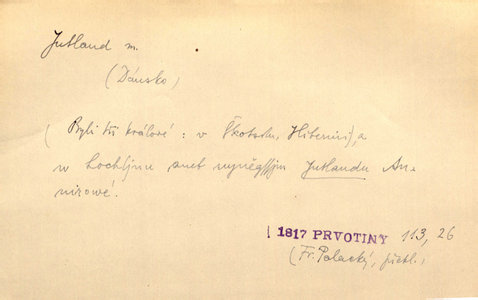 Jutland m.
(Dánsko)
( Byli tři králové : v Škotsku, Hibernii), a
w Loch(jnu anet nyněg(ſjm Jutlandu An-
nirowé.
1817 PRVOTINY 113, 26
(Fr. Palacký, překl.)